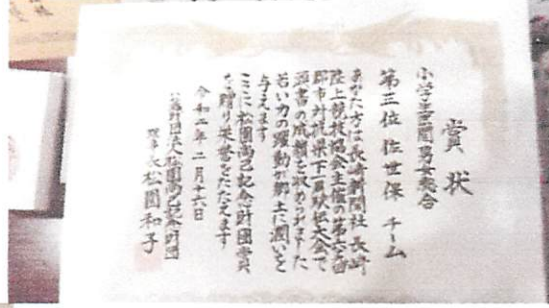 賞状
小学生区間男女総合
第三位 佐世保 チーム
あなた方は長崎新聞社 長崎
陸上競技協会主催の第六九回
郡市対抗県下一周駅伝大会で
頭書の成績を収められました
若い力の躍動が郷土に潤いを
与えます
ここに松園尚己記念財団賞
を贈り栄誉をたたえます
令和二年二月十六日
公益財団法人松園尚己記念財団
理事長 松園和子